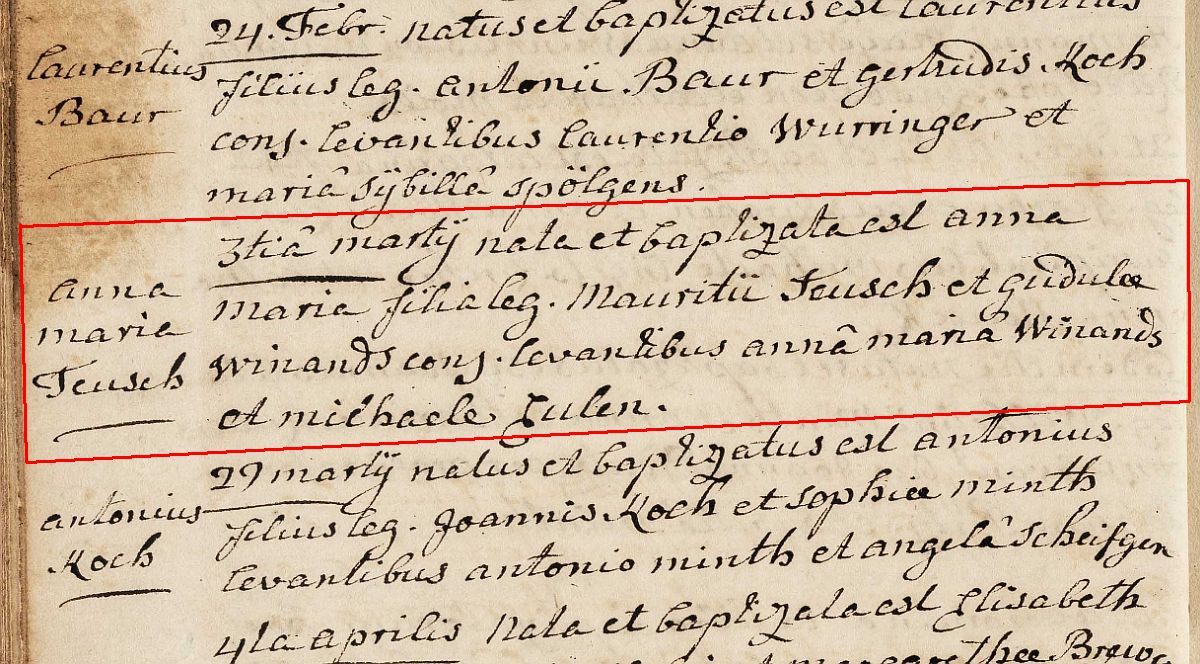 24. Febr. natus et baptizatus est laurentius
laurentius
filius leg. antonii Baur et gertrudis Koch
Baur
conj. levantibus laurentio Wurringer et
mariâ sÿbillâ spölgens.
3tiâ martÿ nata et baptizata est anna
anna
maria filia leg. Mauritii Teusch et gudulæ
maria
Winands conj. levantibus annâ mariâ Winands
Teusch
et michaele Eulen.
29 martÿ natus et baptizatus est antonius
antonius
filius leg. Joannis Koch et sophiæ minth
Koch
levantibus antonio minth et angelâ scheifgen
4ta aprilis Nata et baptizata est Elisabeth